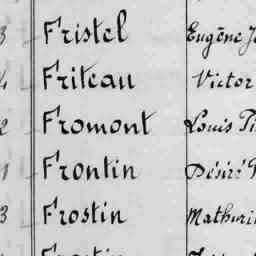 3 Fristel Eugène
4 Friteau Victor
2 Fromont Louis
1 Frontin Désiré
3 Frostin